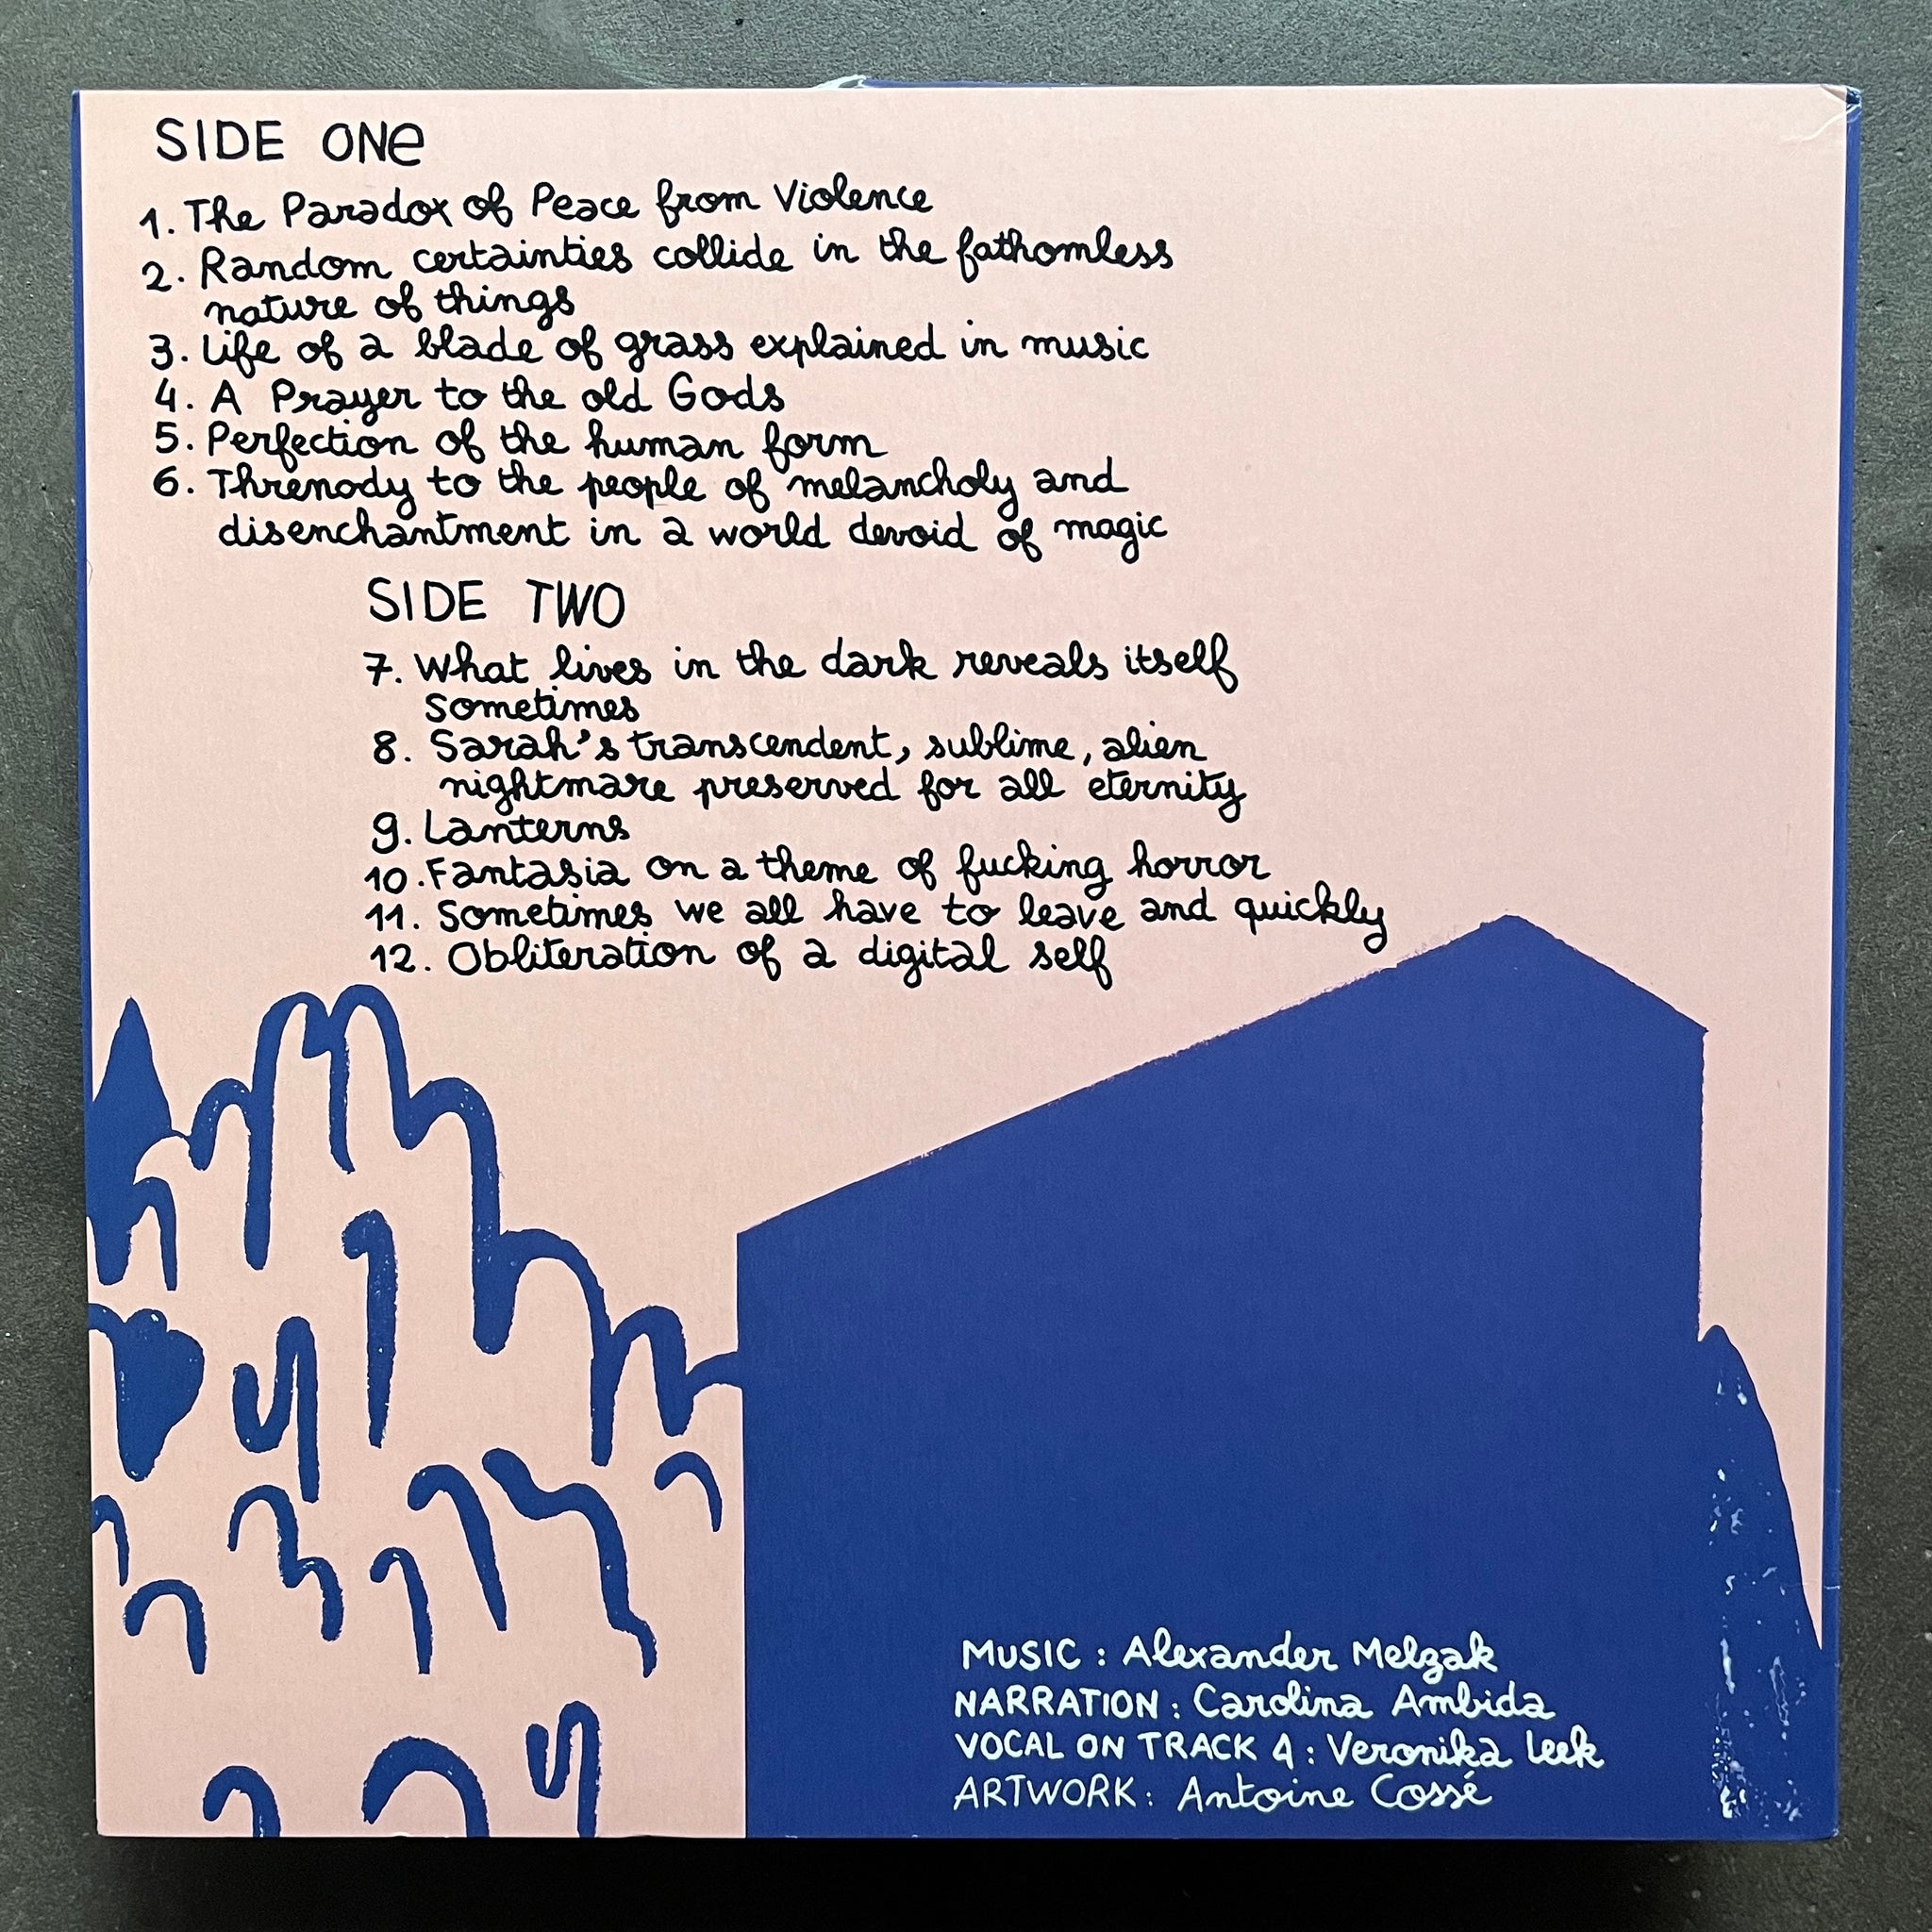 SIDE ONe
1. The Paradox of Peace from Violence
2. Random certainties collide in the fathomless
nature of things
3. Life of a blade of grass explained in music
4. A Prayer to the old Gods
5. Perfection of the human form
6. Threnody to the people of melancholy and
disenchantment in a world devoid of magic
SIDE TWO
7. What lives in the dark reveals itself
sometimes
8. Sarah's transcendent, sublime, alien
nightmare preserved for all eternity
9. Lanterns
10. Fantasia on a theme of fucking horror
11. Sometimes we all have to leave and quickly
12. Obliteration of a digital self
MUSIC : Alexander Melzak
NARRATION : Carolina Ambida
VOCAL ON TRACK 4 : Veronika Leek
ARTWORK : Antoine Cossé